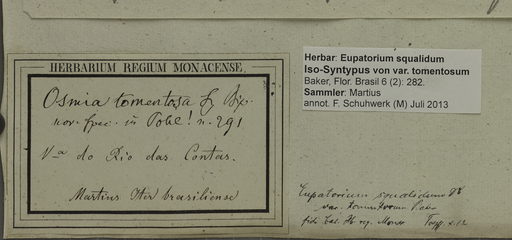 HERBARIUM REGIUM MONACENSE.
Osmia tomentosa
nov. spec. in Pohl! n. 291
Va do Rio das Contas.
Martius Iter brasiliense
Herbar: Eupatorium squalidum
Iso-Syntypus von var. tomentosum
Baker, Flor. Brasil 6 (2): 282.
Sammler: Martius
annot. F. Schuhwerk (M) Juli 2013
Eupatorium squalidum DC
var. tomentosum Baker